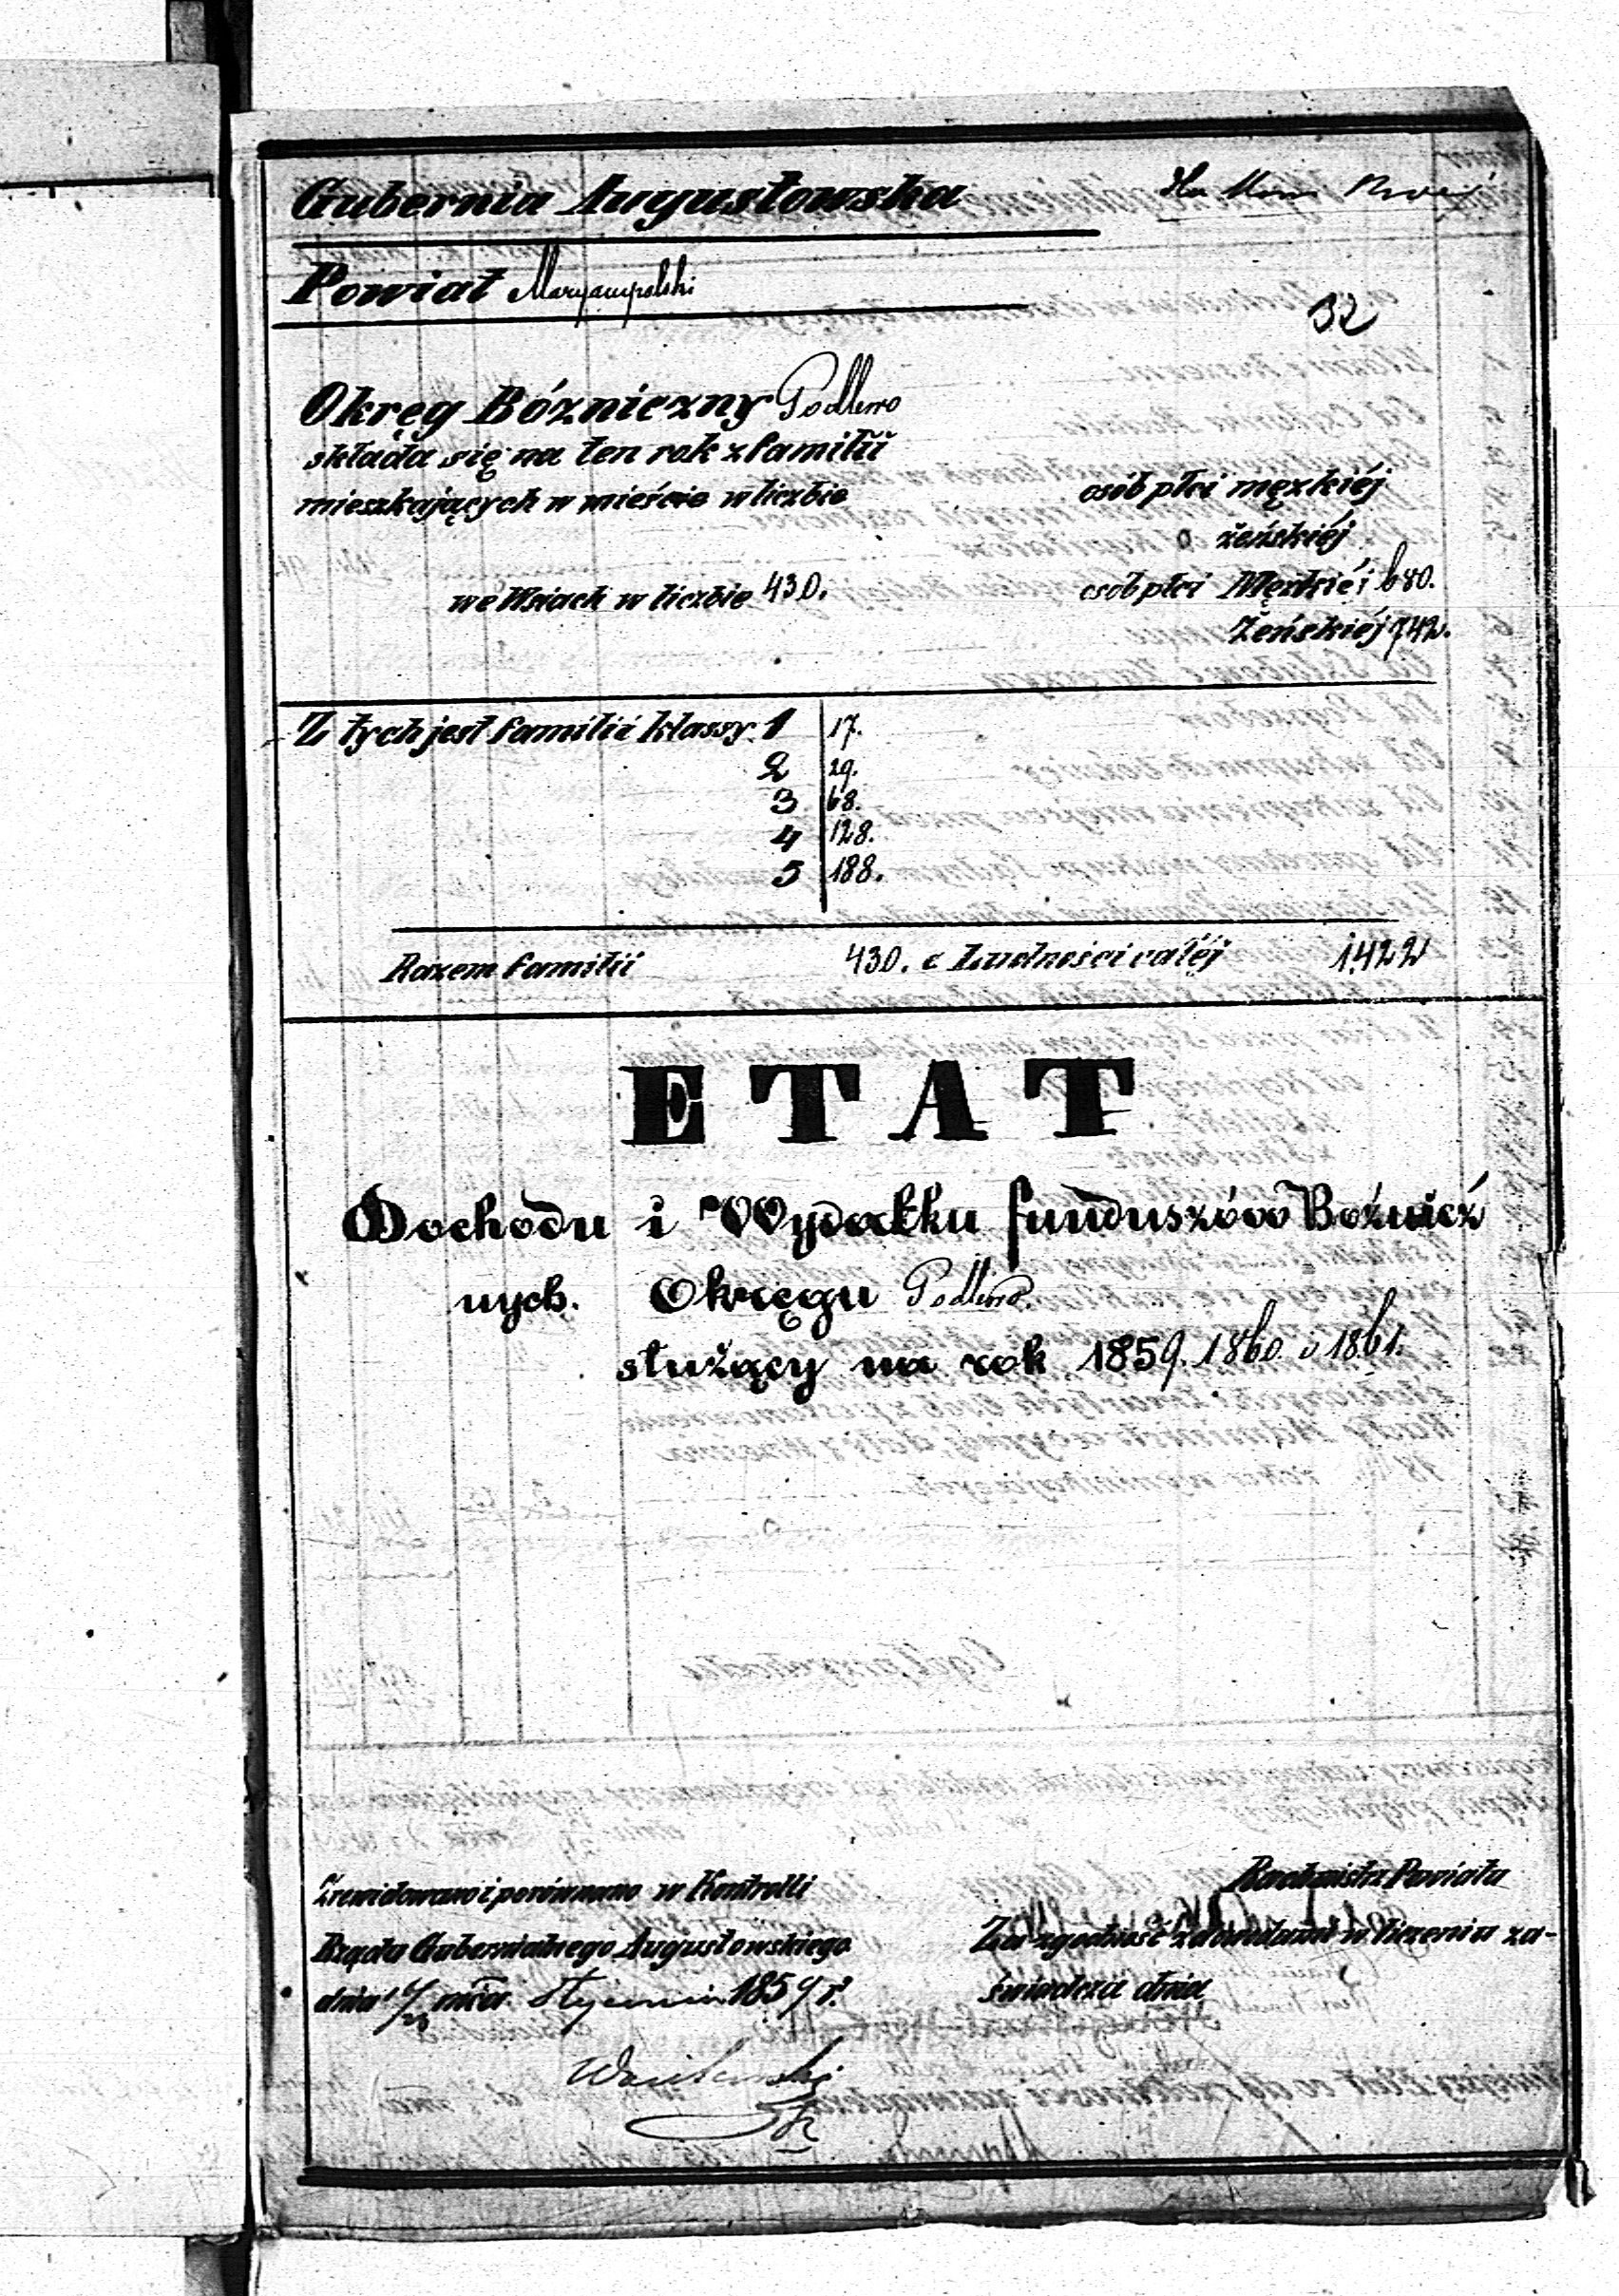 Gubernia Augustowska
Powiat Maryampolski
32
Okręg Bózniczny
składa się na ten rok z familii
mieszkających w mieście w liczbie osób płci męzkiéj
żeńskiéj
we Wsiach w liczbie 430. osób płci Męzkiéj 680.
Żeńskiéj 742.
Z tych jest familii klassy 1 17.
2 29.
3 68.
4 128.
5 188.
Razem familii 430. a Ludności całéj 1,422
ETAT
Dochodu i Wydatku funduszów Bóźnicz
nych. Okręgu
służący na rok 1859. 1860 i 1861.
Zrewidowano i porównano w Kontrolli Rachmistrz Powiatu
Rządu Gubernialnego Augustowskiego Za zgodność zadowodami w liczeniu za-
dnia mca Stycznia 1859 r. świadcza dnia